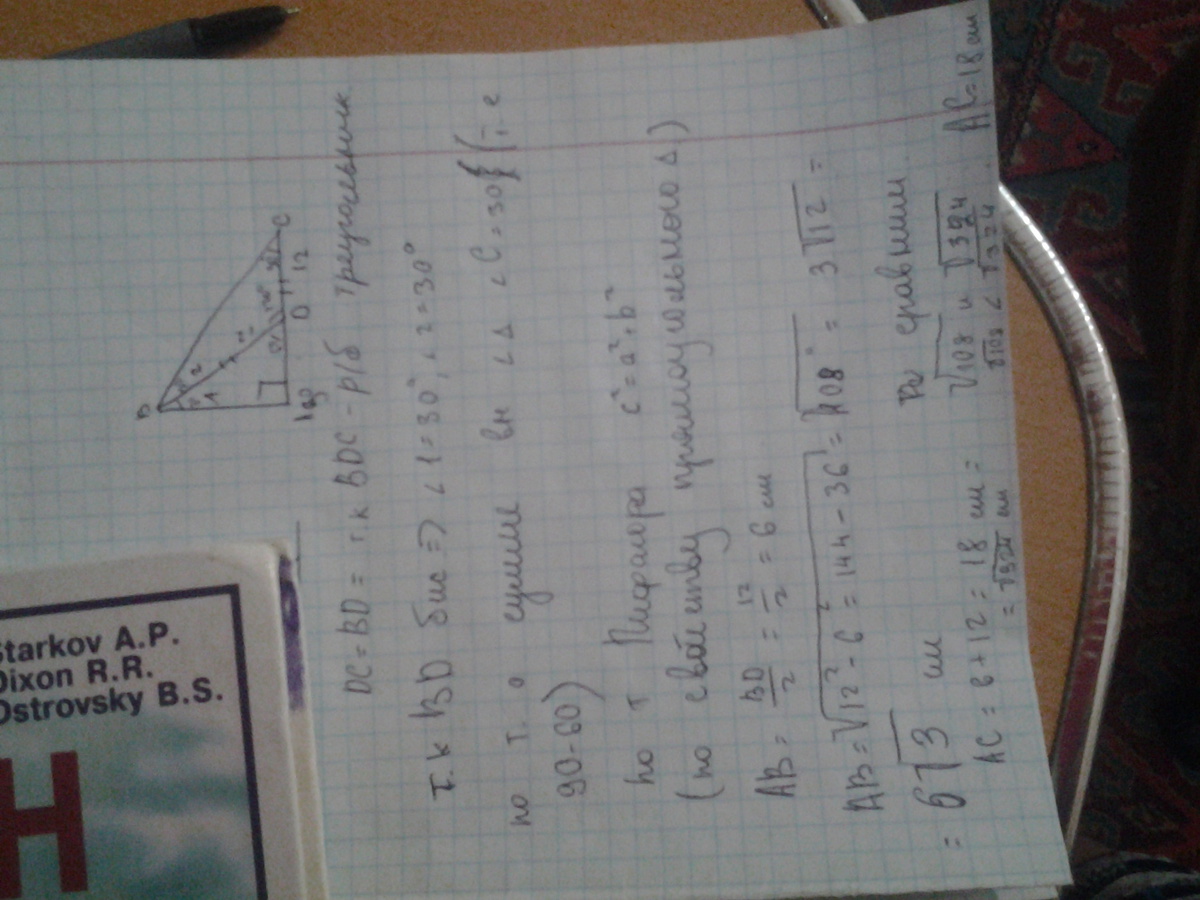 B
2
A
D
C
12
90
DC = BD = т.к BDC - р/б треугольник
т.к BD бис => ∠1=30°, ∠2=30°
по т. о сумме вн ∠ Δ ∠C=30 (т.е
90-60)
по т Пифагора c²=a²+b²
(по свойству прямоугольного Δ)
AB = BD/2 = 12/2 = 6 см
AB = √12²-6² = √144-36 = √108 = 3√12 =
= 6√3 см
сравним
√108 и √324
√108 < √324
AC = 6+12 = 18 см =
= √324 см
AC = 18 см
Starkov A.P.
Dixon R.R.
Ostrovsky B.S.
H